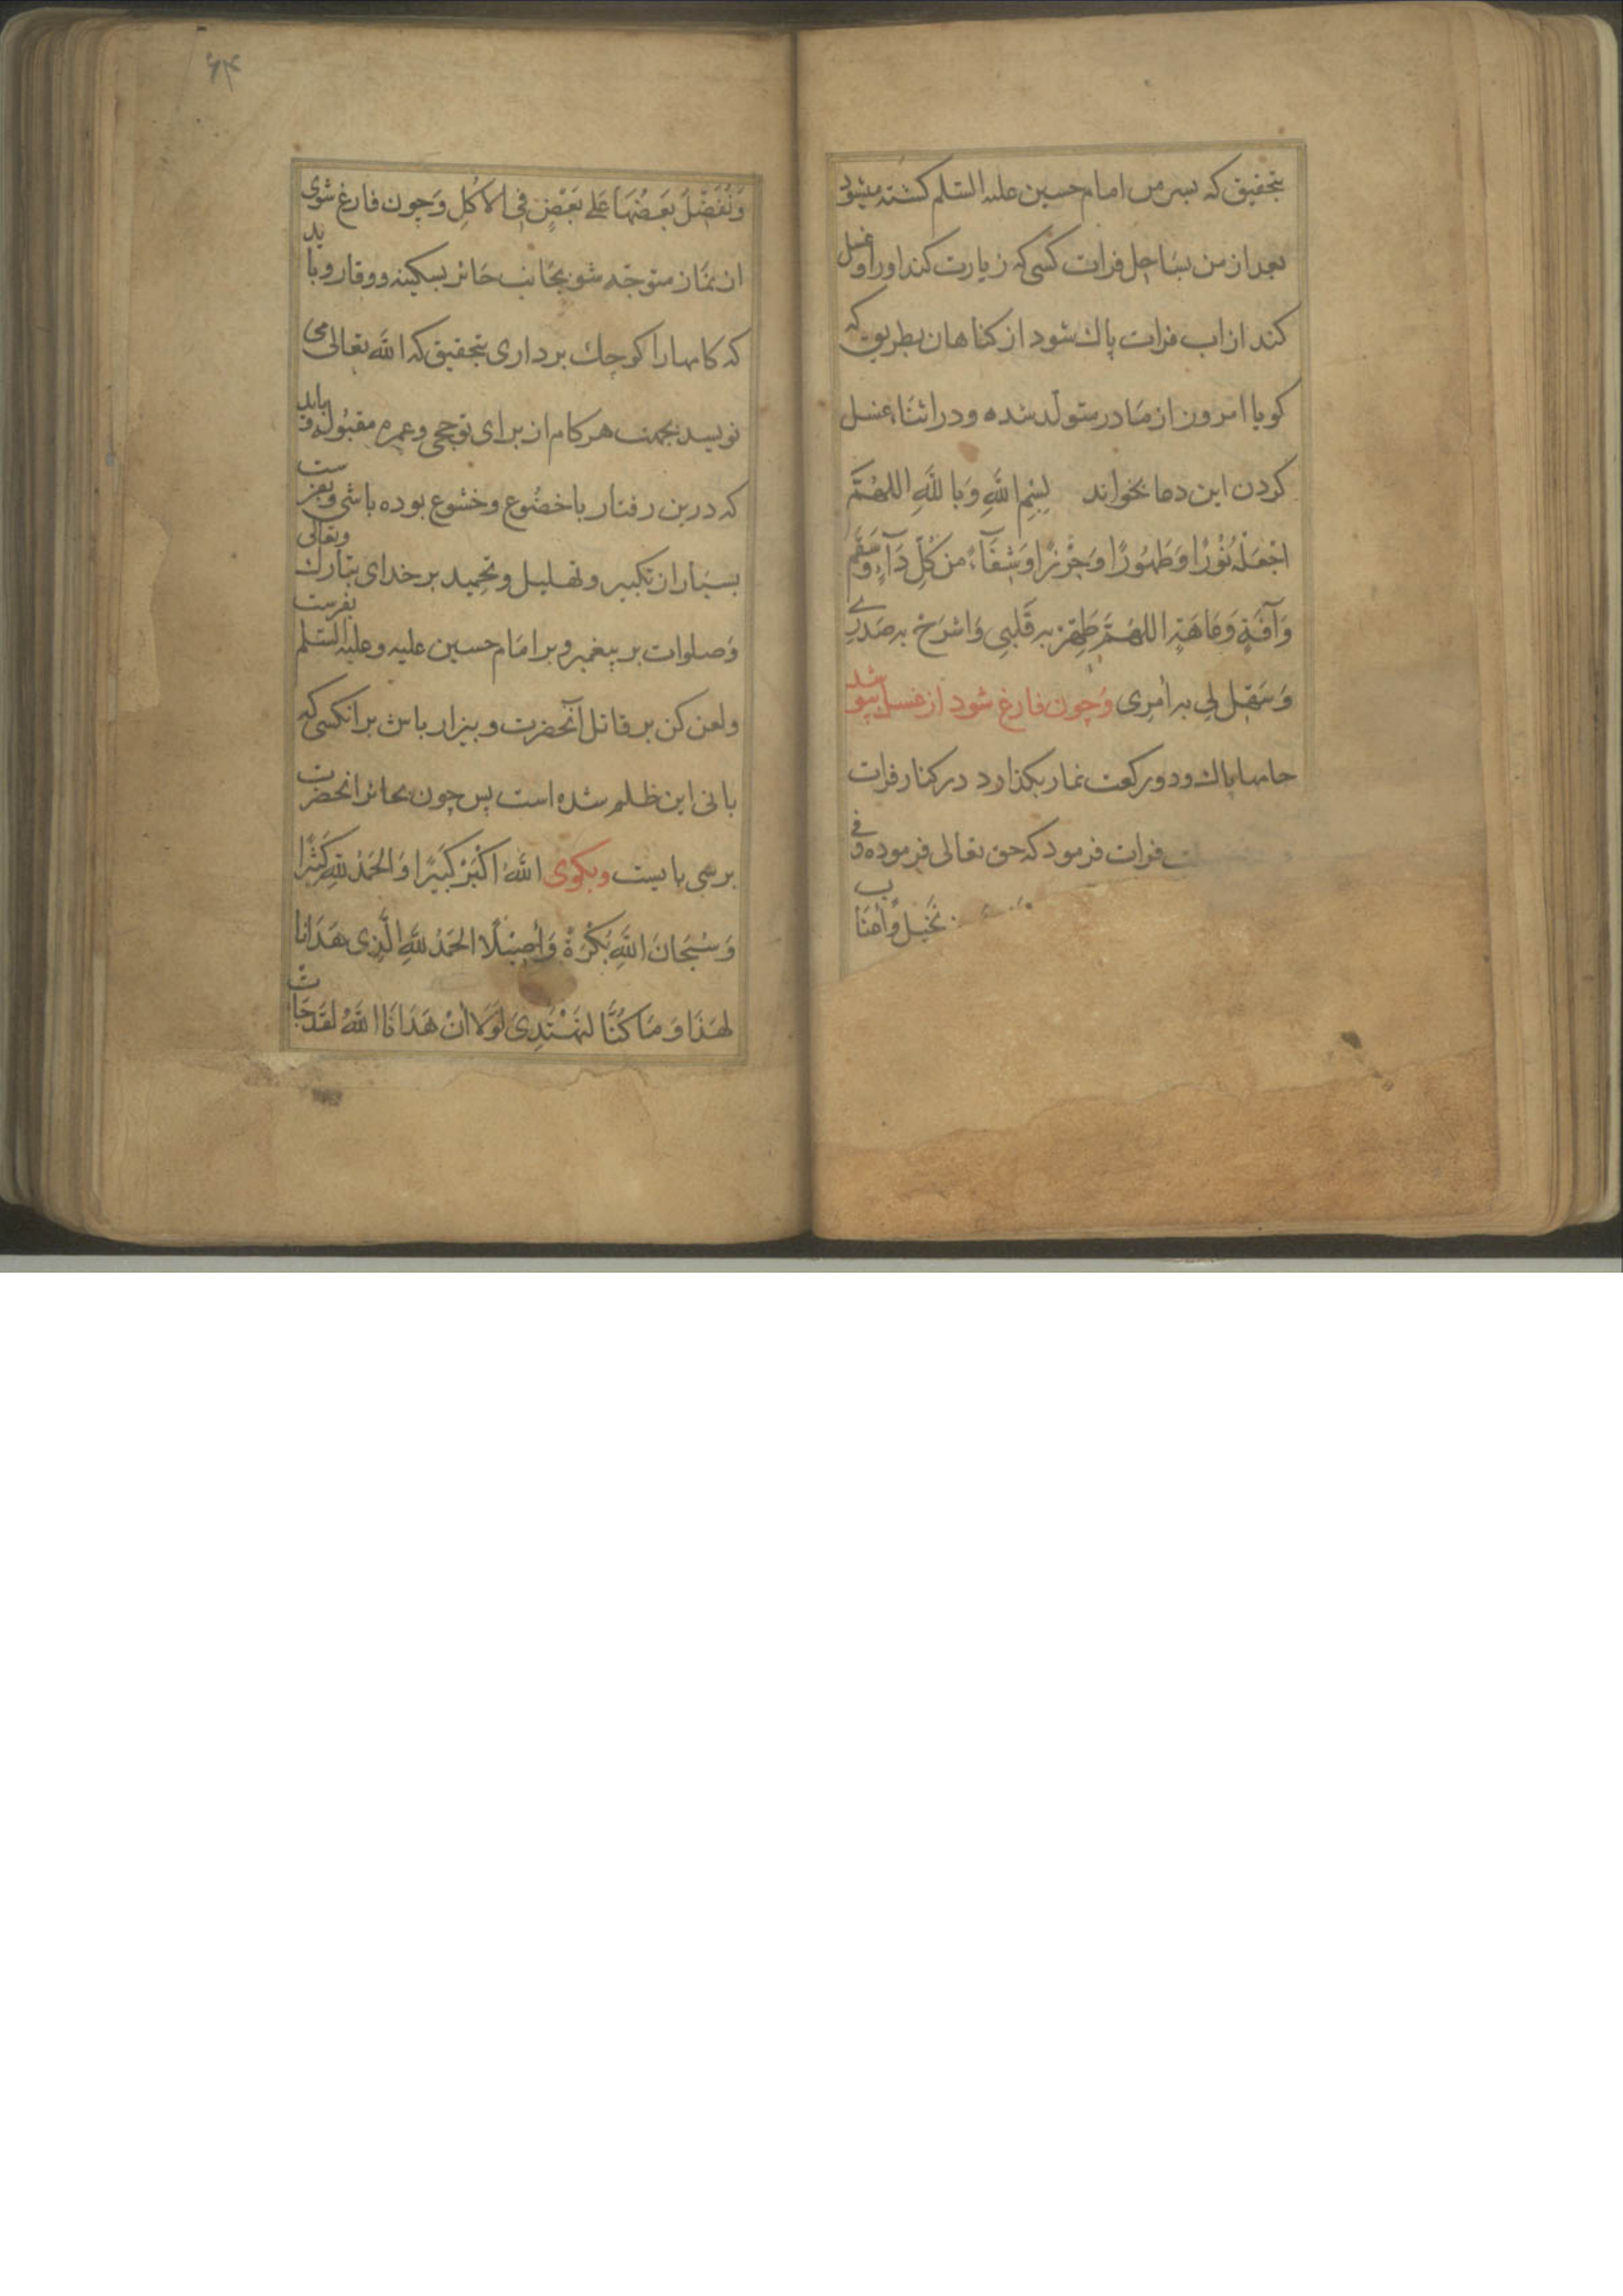 بتحقیق که پسر من امام حسین علیه السلم کشته میشود
بعد از من بسَاحِل فرات کسی که زیارت کند او را و غسل
کند از اب فرات پاك شود از کناهان بطریق که
کویا امروز از مَادر متولّد شده و در اثنَاء غسل
کردن این دعا بخواند بِسْمِ اللهِ وَبِاللهِ اللهُمَّ
اجْعَلْهُ نُوْرًا وَطَهُورًا وَحِرْزًا وَشِفَآءً مِن كُلِّ دَآءٍ وَسَقَمٍ
وَآفَةٍ وَعَاهَةٍ اللهُمَّ طَهِّرْ بِهِ قَلْبِي وَاشْرَحْ بِهِ صَدْرِي
وَسَهِّلْ لِي بِهِ أَمْرِی وَچون فارغ شود از غسل بپوشد
جامها پاك و دو رکعت نماز بکذارد در کنار فرات
فرات فرمود که حق تعالی فرموده وَفِي
نَخِيل وَأعنَاب
۶۴
وَنُفَضِّلُ بَعضُهَا عَلَى بَعْضٍ فِی الاُکُلِ وَچون فارغ شوی
از نمَاز متوجّه شو بجَانب حَائر بسکینه و وقار و باید
که کامها را کوچك برداری بتحقیق که الله تعالی می
نویسد بجهت هر کام از برای تو حجی و عمره مقبُوله و باید
که درین رفتار با خضُوع و خشوع بوده باشی و بفرست
بسیَار از تکبیر و تهلیل و تحمِید بر خدای تبَارك وتعالی
وَصلوات بر پیغمبر و بر امَام حسین علیه و علیه السّلم بفرست
و لعن کن بر قاتل آنحضرت و بیزار باش بر انکسی که
بانی این ظلم شده است پس چون بحائر انحضرت
برسی بایست وبکوی اللهُ اَكْبَرُ كَبِيْرًا وَالْحَمْدُ لِلّهِ كَثِيْرًا
وَسُبْحَانَ اللهِ بُكْرَةً وَأَصِيْلًا الحَمْدُ لِلّهِ الَّذِى هَدَانَا
لِهَذَا وَمَا كُنَّا لِنَهْتَدِىَ لَوْلَا أنْ هَدَانَا اللهُ لَقَدْ جَاءَتْ